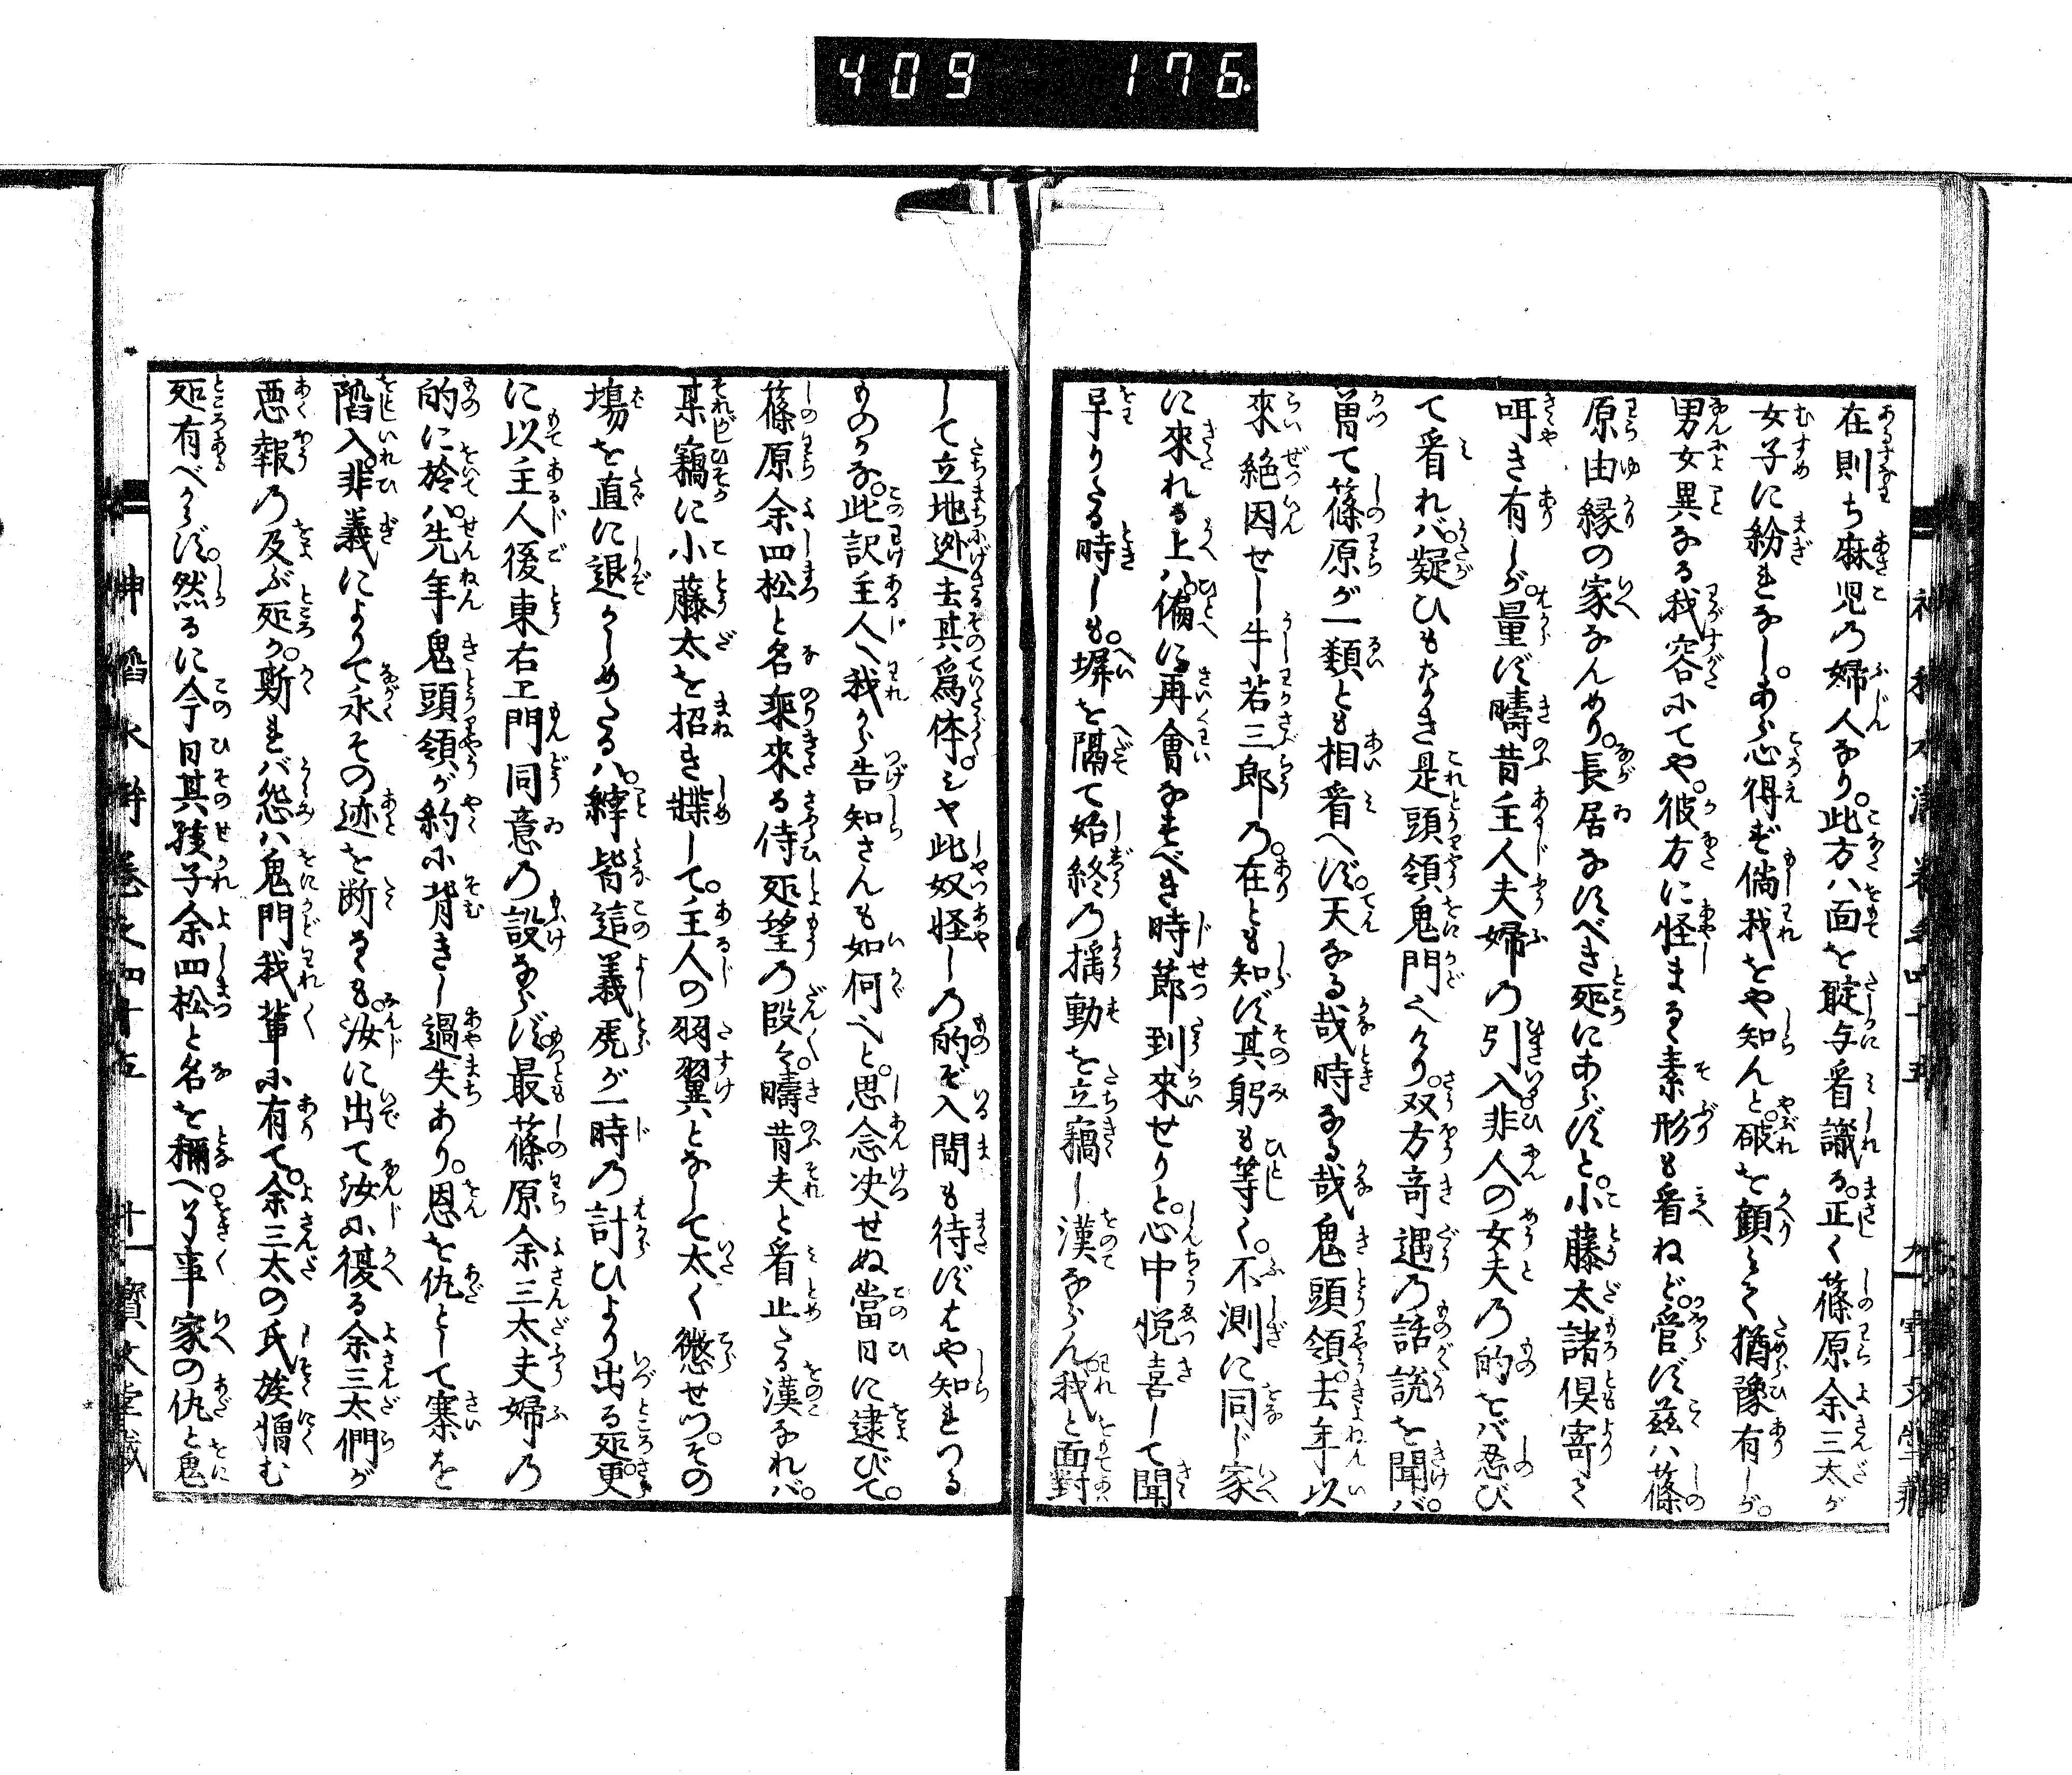 409 176
在則ち麻児の婦人なり。此方ハ面を聢与看識る。正く篠原余三太が
女子に紛れなし。あら心得ず倘我をや知んと。破を顧みて猶豫有しが。
男女異なる我容にてや。彼方に怪まる素形も看ねど。管ず茲ハ篠
原由縁の家なんめり。長居なすべき処にあらずと。小藤太諸倶寄て
呵き有しが。量ず疇昔主人夫婦の引入非人の女夫の的をバ忍び
て看れバ。疑ひもなき是頭領鬼門くり。双方竒遇の話説を聞バ。
曽て篠原が一類とも相看へず。天なる哉時なる哉鬼頭領。去年以
來絶因せし牛若三郎の。在とも知ず其躬も等く。不測に同じ家
に來れる上ハ。偏に再會なすべき時莭到來せりと。心中悦喜して聞
早りたる時しも。塀を隔て始終の搖動を立竊し漢ならん我と面對
して立地迯去其為体。シヤ此奴怪しの的ぞ入間も待ずはや知れつる
ものかな。此訳主人へ我から告知さんも如何ぞと。思念决せぬ當日に逮びて。
篠原余四松と名乗來る侍処望の段々。疇昔夫と看止たる漢なれバ。
某竊に小藤太を招き牒して。主人の羽翼となして太く懲せつ。その
塲を直に退かしめたるハ。縡皆這義虎が一時の計ひより出る処。更
に以主人後東右エ門同意の設ならず。最篠原余三太夫婦の
的に於ハ。先年鬼頭領が約に背きし過失あり。恩を仇として寨を
䧟入。非義によりて永その迹を断なるも。汝に出て汝に復る余三太們が
悪報の及ぶ処か。斯れバ怨ハ鬼門我輩に有て。余三太の氏族憎む
処有べからず。然るに今日其孩子余四松と名を稱へし事家の仇と鬼
神稻水滸 巻之四十五 十一 寳文堂藏